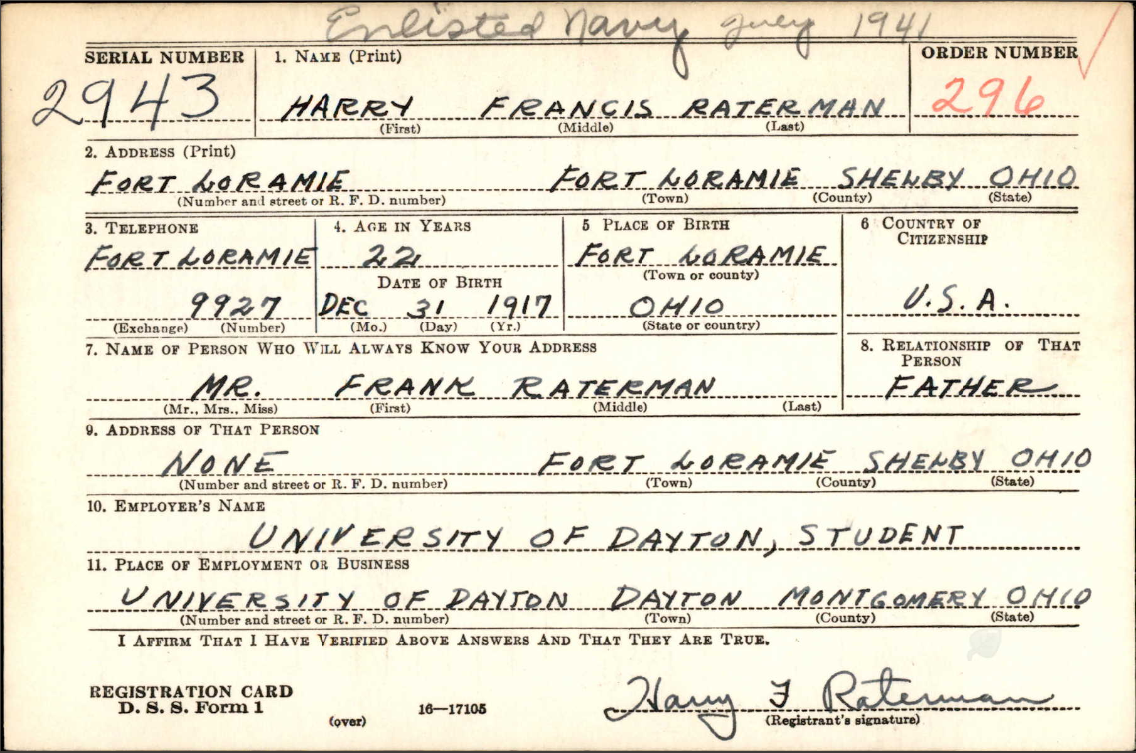 Enlisted Navy July 1941
SERIAL NUMBER 1. NAME (Print) ORDER NUMBER
2943 HARRY FRANCIS RATERMAN 296
(First) (Middle) (Last)
2. ADDRESS (Print)
FORT LORAMIE FORT LORAMIE SHELBY OHIO
(Number and street or R. F. D. number) (Town) (County) (State)
3. TELEPHONE 4. AGE IN YEARS 5 PLACE OF BIRTH 6 COUNTRY OF CITIZENSHIP
FORT LORAMIE 22 FORT LORAMIE
DATE OF BIRTH (Town or county)
9927 DEC 31 1917 OHIO U.S.A.
(Exchange) (Number) (Mo.) (Day) (Yr.) (State or country)
7. NAME OF PERSON WHO WILL ALWAYS KNOW YOUR ADDRESS 8. RELATIONSHIP OF THAT PERSON
MR. FRANK RATERMAN FATHER
(Mr., Mrs., Miss) (First) (Middle) (Last)
9. ADDRESS OF THAT PERSON
NONE FORT LORAMIE SHELBY OHIO
(Number and street or R. F. D. number) (Town) (County) (State)
10. EMPLOYER'S NAME
UNIVERSITY OF DAYTON, STUDENT
11. PLACE OF EMPLOYMENT OR BUSINESS
UNIVERSITY OF DAYTON DAYTON MONTGOMERY OHIO
(Number and street or R. F. D. number) (Town) (County) (State)
I AFFIRM THAT I HAVE VERIFIED ABOVE ANSWERS AND THAT THEY ARE TRUE.
REGISTRATION CARD
D. S. S. Form 1 (over) 16—17105 Harry F Raterman
(Registrant's signature)